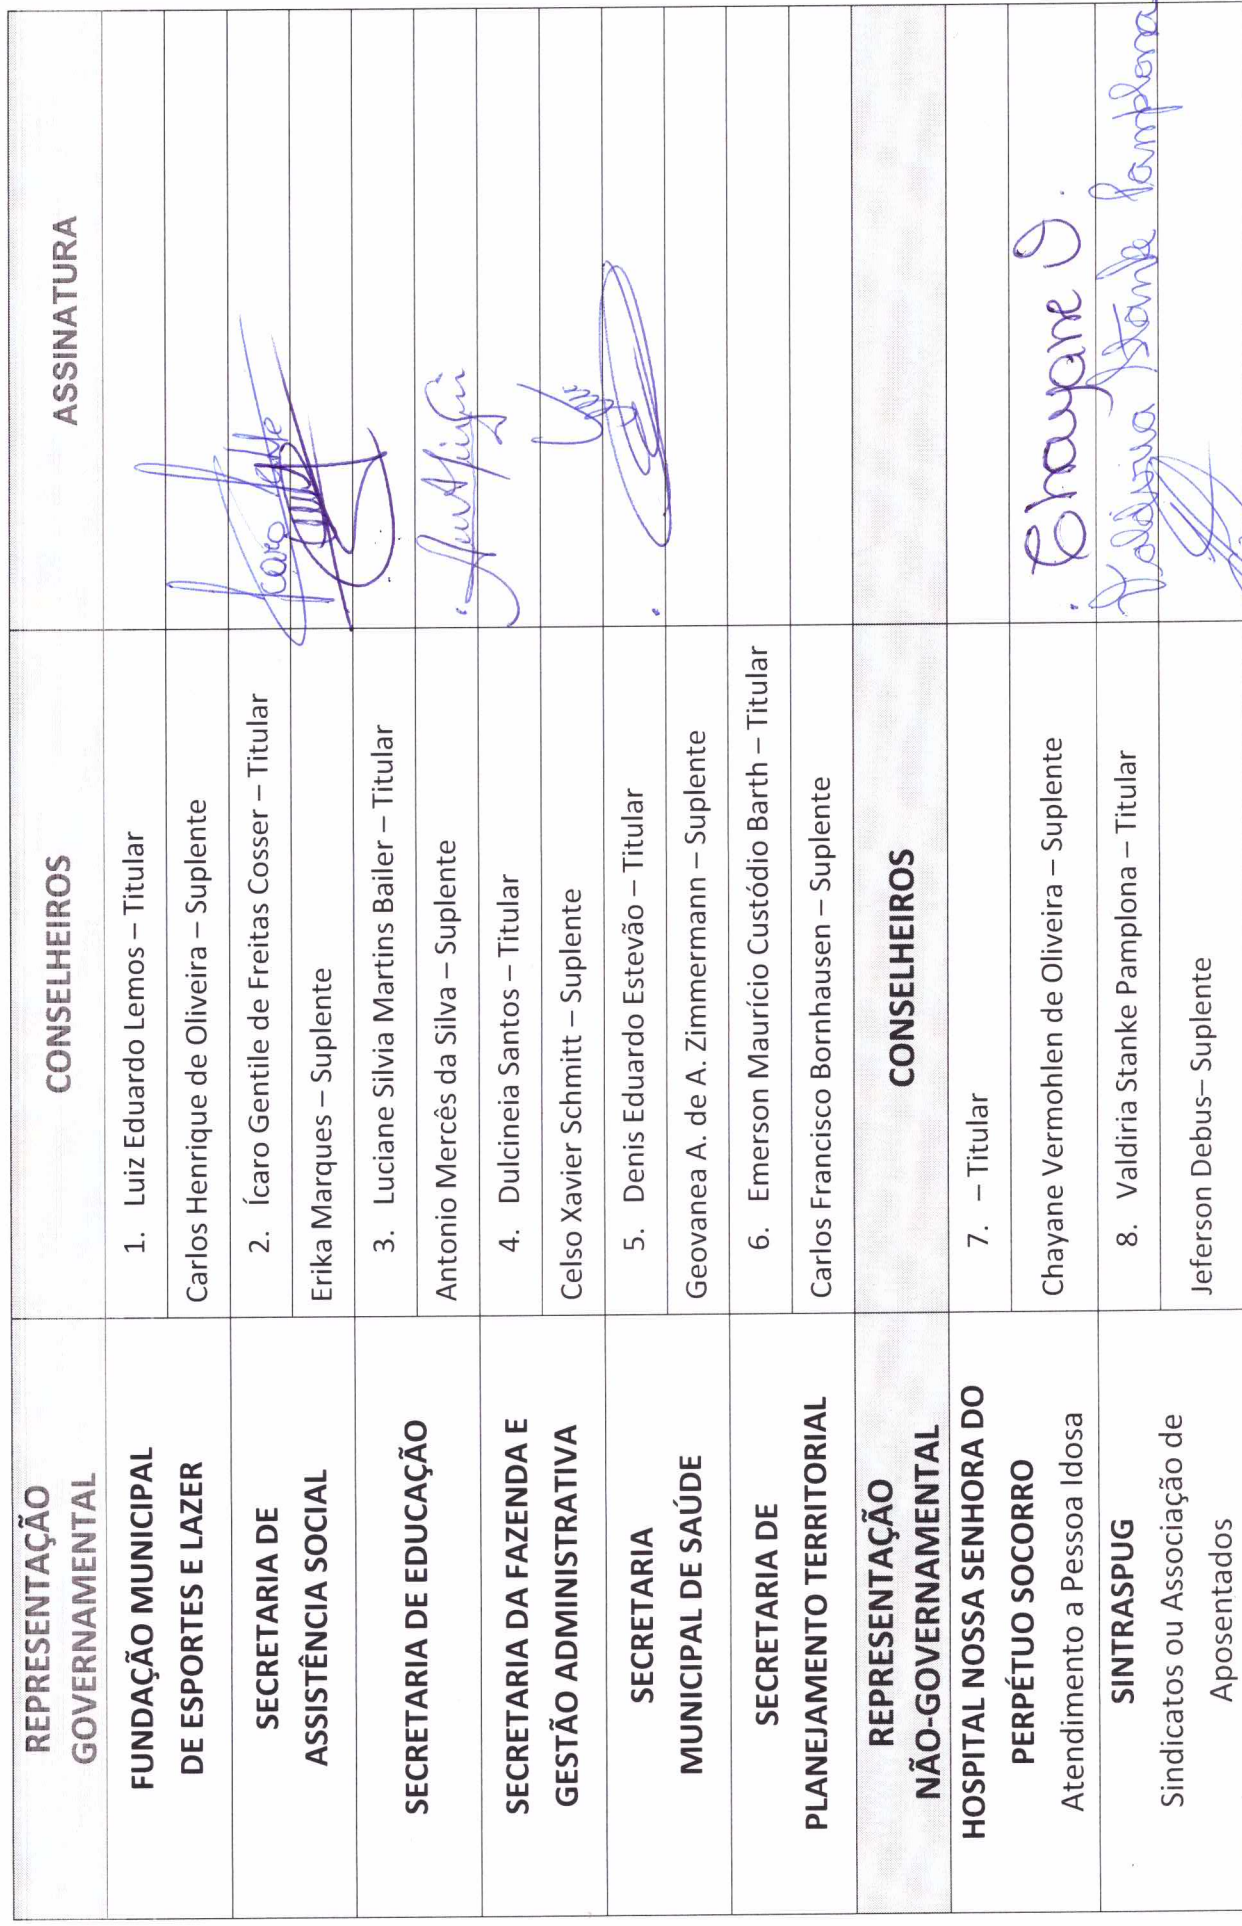 REPRESENTAÇÃO
GOVERNAMENTAL
CONSELHEIROS
ASSINATURA
FUNDAÇÃO MUNICIPAL
DE ESPORTES E LAZER
1. Luiz Eduardo Lemos – Titular
Carlos Henrique de Oliveira – Suplente
SECRETARIA DE
ASSISTÊNCIA SOCIAL
2. Ícaro Gentile de Freitas Cosser – Titular
Erika Marques – Suplente
SECRETARIA DE EDUCAÇÃO
3. Luciane Silvia Martins Bailer – Titular
Antonio Mercês da Silva – Suplente
SECRETARIA DA FAZENDA E
GESTÃO ADMINISTRATIVA
4. Dulcineia Santos – Titular
Celso Xavier Schmitt – Suplente
SECRETARIA
MUNICIPAL DE SAÚDE
5. Denis Eduardo Estevão – Titular
Geovanea A. de A. Zimmermann – Suplente
SECRETARIA DE
PLANEJAMENTO TERRITORIAL
6. Emerson Maurício Custódio Barth – Titular
Carlos Francisco Bornhausen – Suplente
REPRESENTAÇÃO
NÃO-GOVERNAMENTAL
CONSELHEIROS
HOSPITAL NOSSA SENHORA DO
PERPÉTUO SOCORRO
Atendimento a Pessoa Idosa
7. – Titular
Chayane Vermohlen de Oliveira – Suplente
Chayane
SINTRASPUG
Sindicatos ou Associação de
Aposentados
8. Valdiria Stanke Pamplona – Titular
Valdiria Stanke Pamplona
Jeferson Debus– Suplente